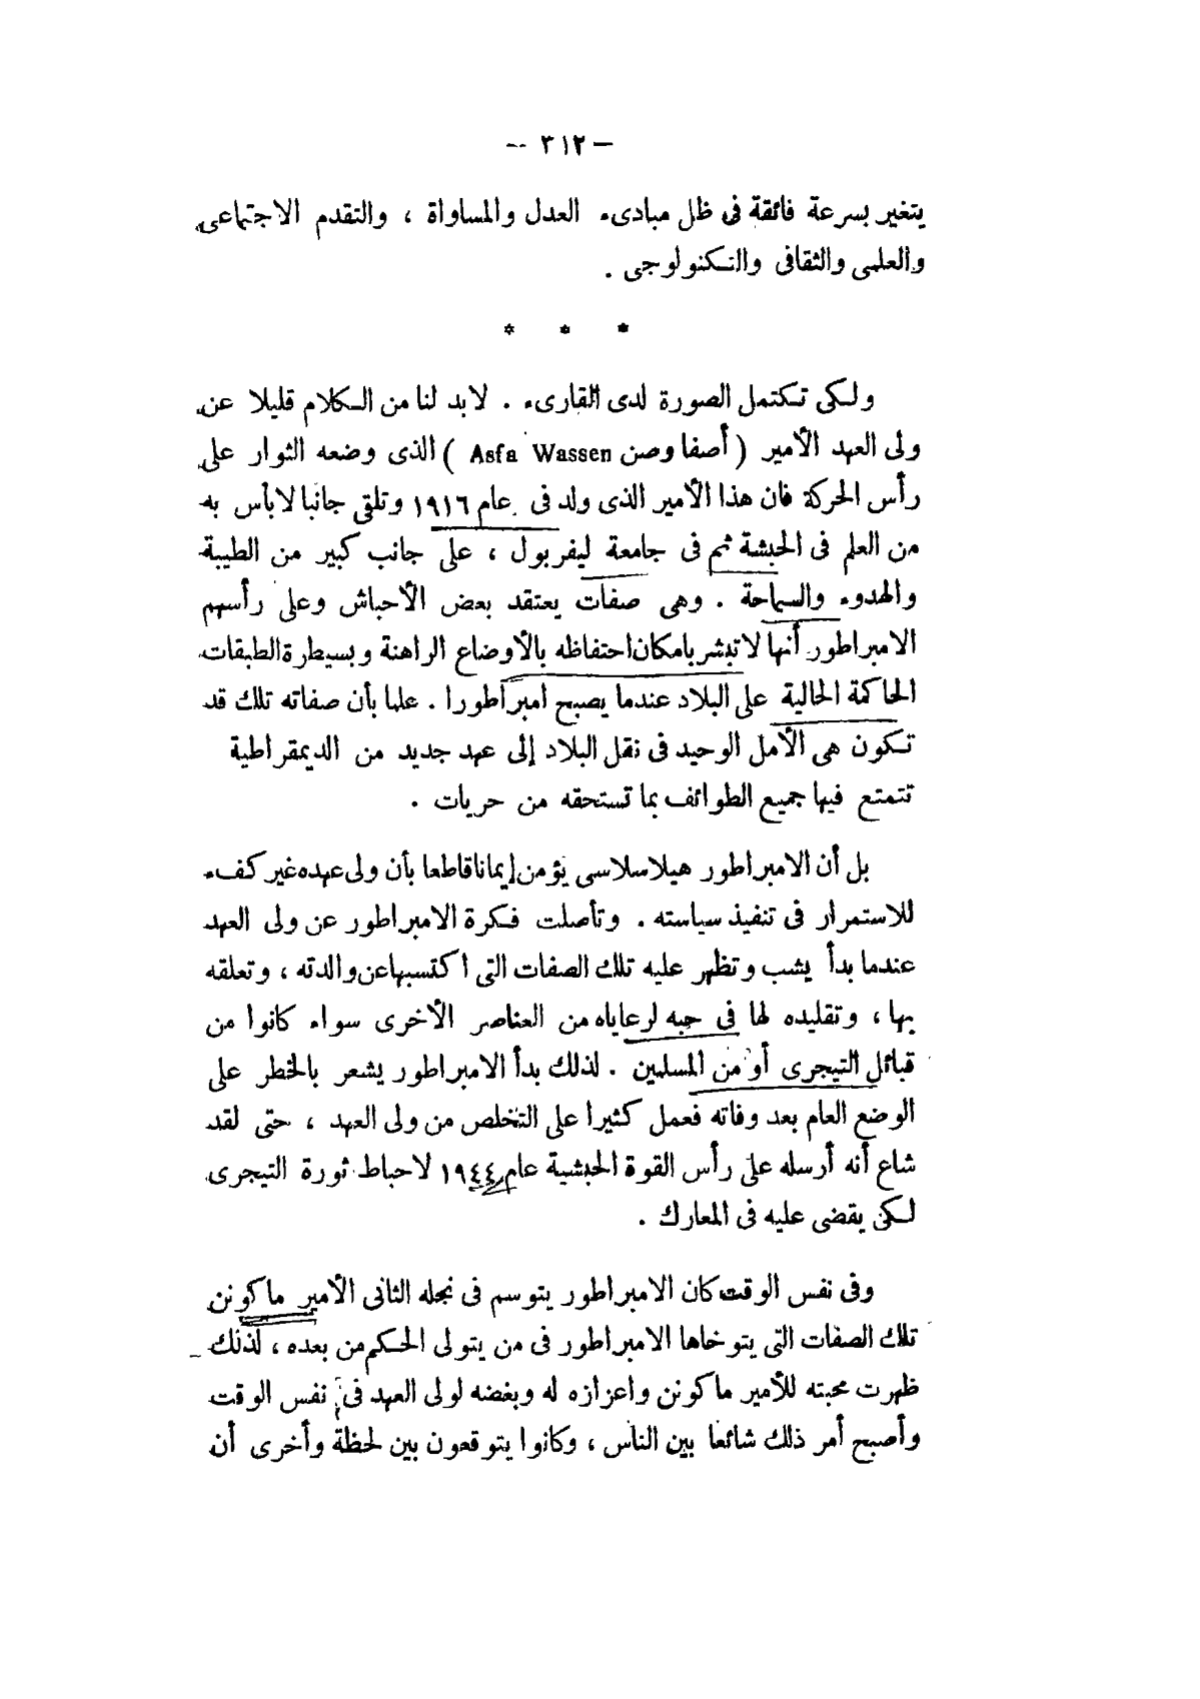 — ٣١٢ —
يتغير بسرعة فائقة فى ظل مبادىء العدل والمساواة ، والتقدم الاجتماعى
والعلمى والثقافى والتكنولوجى .
* * *
ولكى تكتمل الصورة لدى القارىء . لابد لنا من الكلام قليلا عن
ولى العهد الأمير ( أصفا وصن Asfa Wassen ) الذى وضعه الثوار على
رأس الحركة فان هذا الأمير الذى ولد فى عام ١٩١٦ وتلقى جانبا لابأس به
من العلم فى الحبشة ثم فى جامعة ليفربول ، على جانب كبير من الطيبة
والهدوء والسماحة . وهى صفات يعتقد بعض الأحباش وعلى رأسهم
الامبراطور أنها لاتبشر بامكان احتفاظه بالأوضاع الراهنة وبسيطرة الطبقات
الحاكمة الحالية على البلاد عندما يصبح امبراطورا . علما بأن صفاته تلك قد
تكون هى الأمل الوحيد فى نقل البلاد إلى عهد جديد من الديمقراطية
تتمتع فيها جميع الطوائف بما تستحقه من حريات .
بل أن الامبراطور هيلاسلاسى يؤمن إيمانا قاطعا بأن ولى عهده غير كفء
للاستمرار فى تنفيذ سياسته . وتأصلت فكرة الامبراطور عن ولى العهد
عندما بدأ يشب وتظهر عليه تلك الصفات التى اكتسبها عن والدته ، وتعلقه
بها ، وتقليده لها فى حبه لرعاياه من العناصر الأخرى سواء كانوا من
قبائل التيجرى أو من المسلمين . لذلك بدأ الامبراطور يشعر بالخطر على
الوضع العام بعد وفاته فعمل كثيرا على التخلص من ولى العهد ، حتى لقد
شاع أنه أرسله على رأس القوة الحبشية عام ١٩٤٤ لاحباط ثورة التيجرى
لكى يقضى عليه فى المعارك .
وفى نفس الوقت كان الامبراطور يتوسم فى نجله الثانى الأمير ماكونن
تلك الصفات التى يتوخاها الامبراطور فى من يتولى الحكم من بعده ، لذلك
ظهرت محبته للأمير ماكونن واعزازه له وبغضه لولى العهد فى نفس الوقت
وأصبح أمر ذلك شائعا بين الناس ، وكانوا يتوقعون بين لحظة وأخرى أن